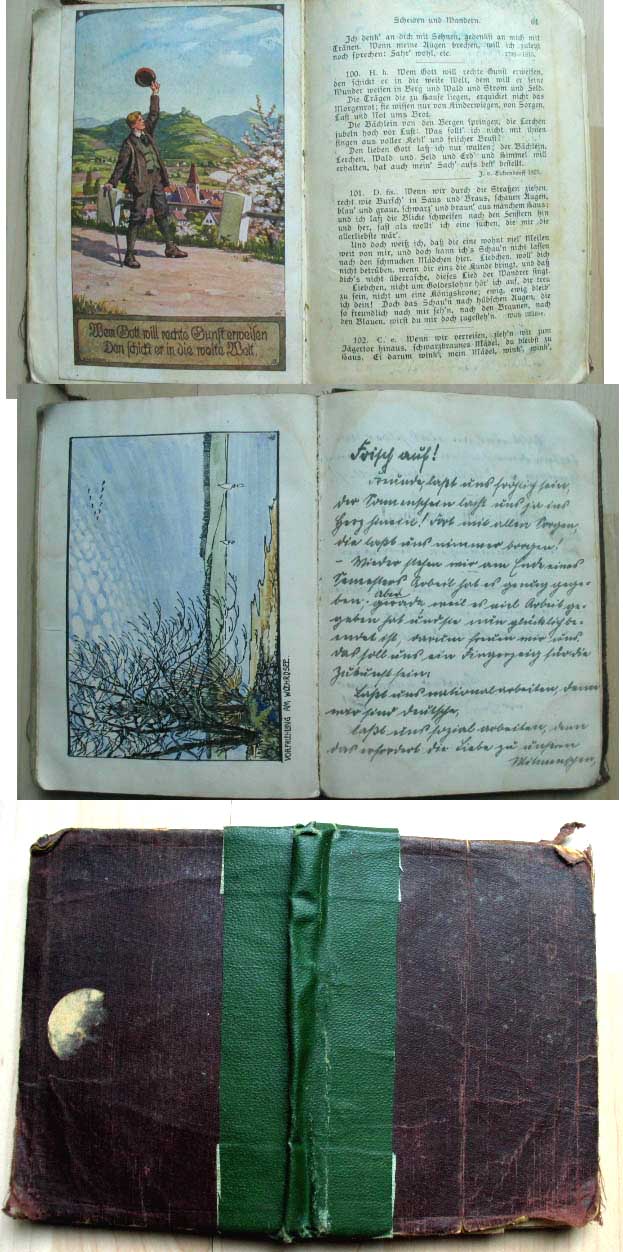 Wem Gott will rechte Gunst erweisen
Den schickt er in die weite Welt.
Scheiden und Wandern. 61
Ich denk' an dich mit Sehnen, gedenkst an mich mit
Tränen. Wenn meine Augen brechen, will ich zuletzt
noch sprechen: Fahr' wohl, etc.
100. H. k. Wem Gott will rechte Gunst erweisen,
den schickt er in die weite Welt, dem will er seine
Wunder weisen in Berg und Wald und Strom und Feld.
Die Trägen die zu Hause liegen, erquicket nicht das
Morgenrot; sie wissen nur von Kinderwiegen, von Sorgen,
Last und Not ums Brot.
Die Bächlein von den Bergen springen, die Lerchen
jubeln hoch vor Lust: Was sollt' ich nicht mit ihnen
singen aus voller Kehl' und frischer Brust?
Den lieben Gott laß ich nur walten; der Bächlein,
Lerchen, Wald und Feld und Erd' und Himmel will
erhalten, hat auch mein' Sach' aufs best' bestellt.
J. v. Eichendorff
101. D. fa. Wenn wir durch die Straßen ziehen,
recht wie Bursch' in Saus und Braus, schauen Augen,
blau' und graue, schwarz' und braun' aus manchem Haus;
und ich laß die Blicke schweifen nach den Fenstern hin
und her, fast als wollt' ich eine suchen, die mir die
allerliebste wär'.
Und doch weiß ich, daß die eine wohnt viel' Meilen
weit von mir, und doch kann ich's Schau'n nicht lassen
nach den schmucken Mädchen hier. Liebchen, woll' dich
nicht betrüben, wenn dir eins die Kunde bringt, und daß
dich's nicht überrasche, dieses Lied der Wandrer singt.
Liebchen, nicht um Goldeslohne hör' ich auf, dir treu
zu sein, nicht um eine Königskrone; ewig, ewig bleib'
ich dein! Doch das Schau'n nach hübschen Augen, die
so freundlich nach mir seh'n, nach den Braunen, nach
den Blauen, wirst du mir doch zugesteh'n.
102. C. e. Wenn wir verreisen, zieh'n wir zum
Jägertor hinaus, schwarzbraunes Mädel, du bleibst zu
Haus. Ei darum wink', mein Mädel, wink', wink',
VORFRÜHLING AM WOEHRDSEE.
Frisch auf!
Freunde, laßt uns fröhlich sein,
der Sonnenschein lacht uns ja ins
Herz hinein! Fort mit allen Sorgen,
die laßt uns nimmer borgen!
– Wieder stehen wir am Ende eines
Semesters Arbeit hat es genug gege-
ben. Aber gerade weil es viel Arbeit ge-
geben hat und sie nun glücklich be-
endet ist, darum freuen wir uns.
Das soll uns ein Fingerzeig für die
Zukunft sein:
Laßt uns national arbeiten, denn
wir sind Deutsche,
laßt uns sozial arbeiten, denn
das erfordert die Liebe zu unsern
Mitmenschen,